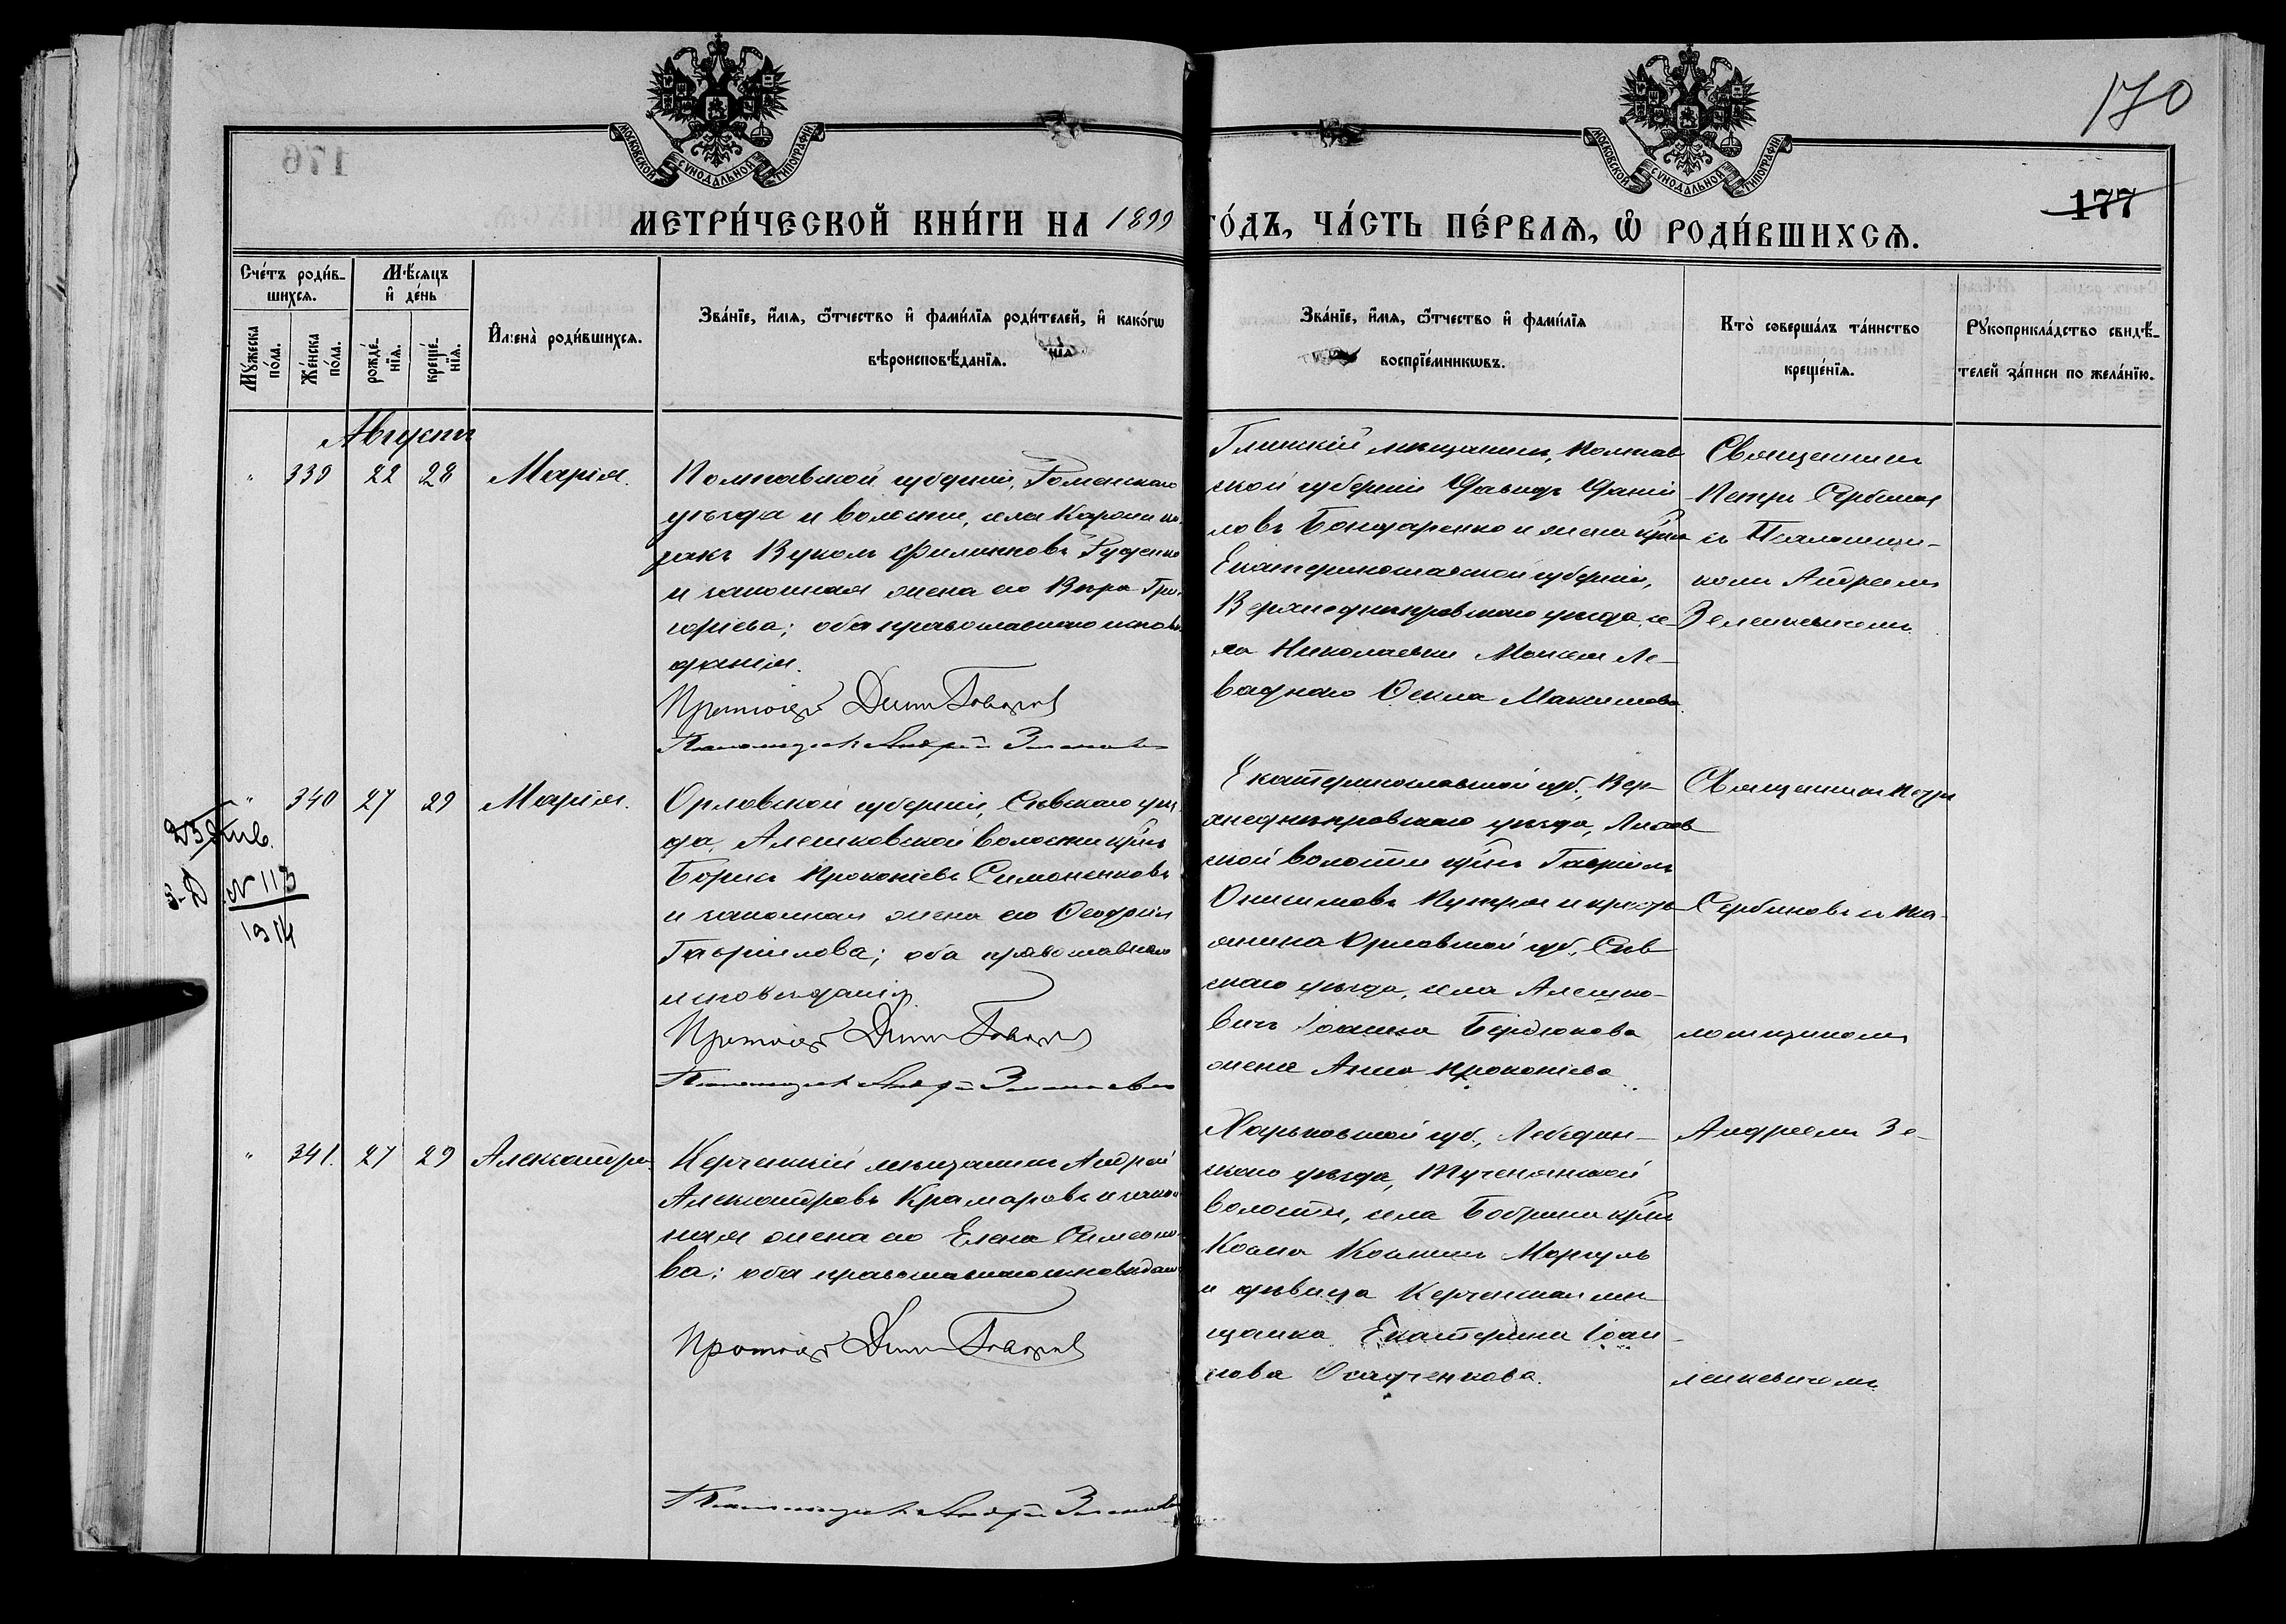 170
177
МОСКОВСКОЙ СѴНОДАЛЬНОЙ ТИПОГРАФІИ
МОСКОВСКОЙ СѴНОДАЛЬНОЙ ТИПОГРАФІИ
МЕТРИ́ЧЕСКОЙ КНИ́ГИ НА 1899 ГО́ДЪ, ЧА́СТЬ ПЕ́РВАѦ, Ѡ҆ РОДИ́ВШИХСѦ.
Сче́тъ роди́в-
шихсѧ.
Мꙋ́жеска по́ла.
Же́нска по́ла.
Мѣ́сѧцъ
и҆ де́нь
рожде́-нїѧ.
креще́-нїѧ.
И҆мена̀ роди́вшихсѧ.
Зва́нїе, и҆́мѧ, ѻ҆́тчество и҆ фами́лїѧ роди́телей, и҆ како́гѡ
вѣроисповѣ́данїѧ.
Зва́нїе, и҆́мѧ, ѻ҆́тчество и҆ фами́лїѧ
воспрїе́мникѡвъ.
Кто̀ соверша́лъ та́инство
креще́нїѧ.
Рꙋкоприкла́дство свидѣ́-
телей за́писи по жела́нїю.
Августъ
" 339 22 28 Марія.
Полтавской губерніи, Роменскаго
уѣзда и волости, села Коровин ко-
закъ Вуколъ Филипповъ Руденко
и законная жена его Вѣра Гри-
горіева; оба православнаго исповѣ-
данія.
Протоіер Дим
Псаломщикъ Андрей
Глинскій мѣщанинъ, Полтав
ской губерніи Давидъ Даніи
ловъ Бондаренко и жена крᲂ
Екатеринославской губерніи,
Верхнеднѣпровскаго уѣзда, се-
ла Николаевки Моисея Ле-
ваднаго Ѳекла Максимова.
Священникъ
Петръ Сербиновъ
съ Псаломщи-
комъ Андреемъ
Зеленкевичемъ.
" 340 27 29 Марія.
№ 113
1914
Орловской губерніи, Сѣвскаго уѣз
да, Алешковской волости кр-нъ
Борисъ Прокопіевъ Симоненковъ
и законная жена его Ѳеодосія
Гавріилова; оба православнаго
исповѣданія.
Протоіер Дим
Псаломщикъ Андрей
Екатеринославской губ., Вер-
хнеднѣпровскаго уѣзда, Лихов
ской волости кр-нъ Гавріилъ
Онисимовъ и кресть
янина Орловской губ., Сѣв
скаго уѣзда, села Алешко-
вичъ Іоанна Бердюкова
жена Анна Прокопіева.
Священникъ Петръ
Сербиновъ съ Пса-
ломщикомъ
" 341. 27 29 Александра
Керченскій мѣщанинъ Андрей
Александровъ Крамаровъ и закон
ная жена его Елена Симеоно-
ва; оба православнаго исповѣдан
Протоіер Дим
Псаломщикъ Андрей
Харьковской губ., Лебедин-
скаго уѣзда,
волости, села Бобрика кр-нъ
Косма Космин Моргуль
и дѣвица Керченская мѣ
щанка Екатерина Іоан-
нова Осадченкова.
Андреемъ Зе-
ленкевичемъ